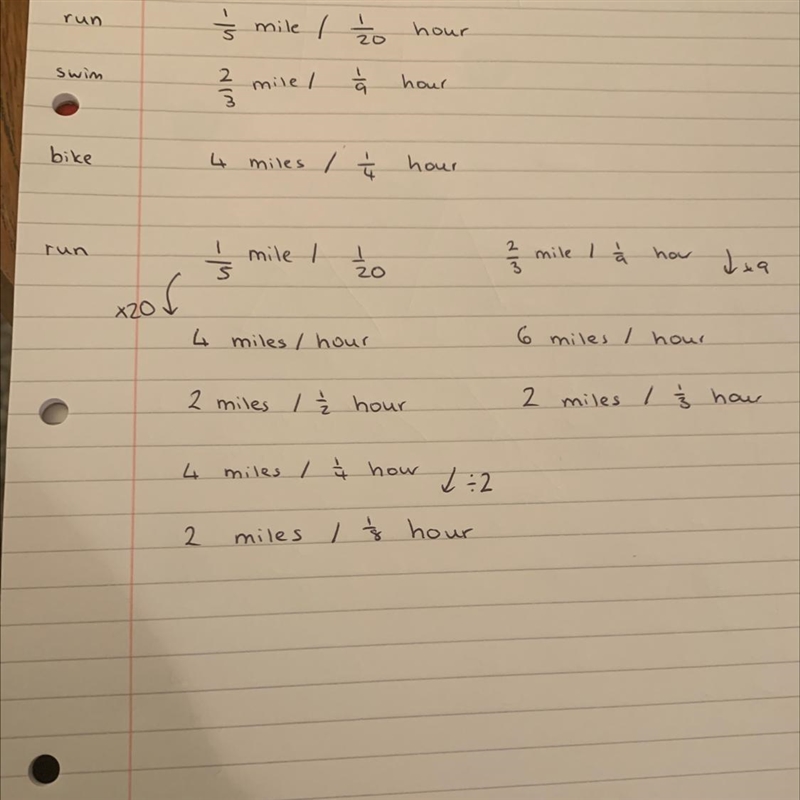 run 1/5 mile / 1/20 hour
swim 2/3 mile / 1/9 hour
bike 4 miles / 1/4 hour
run 1/5 mile / 1/20 2/3 mile / 1/9 hour ↓×9
×20 ↓
4 miles / hour 6 miles / hour
2 miles / 1/2 hour 2 miles / 1/3 hour
4 miles / 1/4 hour ↓ ÷2
2 miles / 1/8 hour